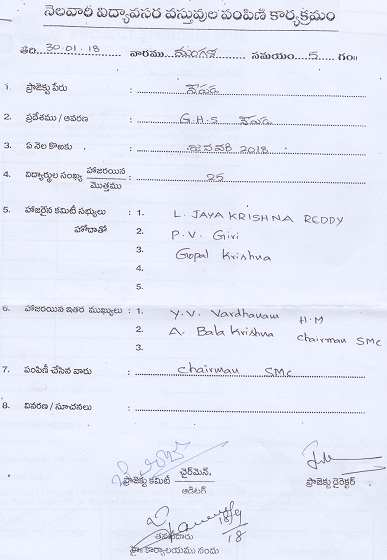 నెలవారీ విద్యావసర వస్తువుల పంపిణి కార్యక్రమం
తేది. 30.01.18 వారము మంగళ సమయం. 5 గం॥
1. ప్రాజెక్టు పేరు :
2. ప్రదేశము / ఆవరణ : G.H.S
3. ఏ నెల కొఱకు : జనవరి 2018
4. విద్యార్థుల సంఖ్య హాజరయిన / మొత్తము : 25
5. హాజరైన కమిటీ సభ్యులు : 1. L. JAYA KRISHNA REDDY
హోదాతో 2. P.V. Giri
3. Gopal Krishna
4.
5.
6. హాజరయిన ఇతర ముఖ్యులు : 1. Y.V. Vardhanam H.M
2. A. Bala Krishna Chairman SMC
3.
7. పంపిణీ చేసిన వారు : Chairman SMC
8. వివరణ / సూచనలు :
ప్రాజెక్టు కమిటీ చైర్‌మెన్. / ఆడిటర్ ప్రాజెక్టు డైరెక్టర్
18/9/18
కార్యాలయము నందు